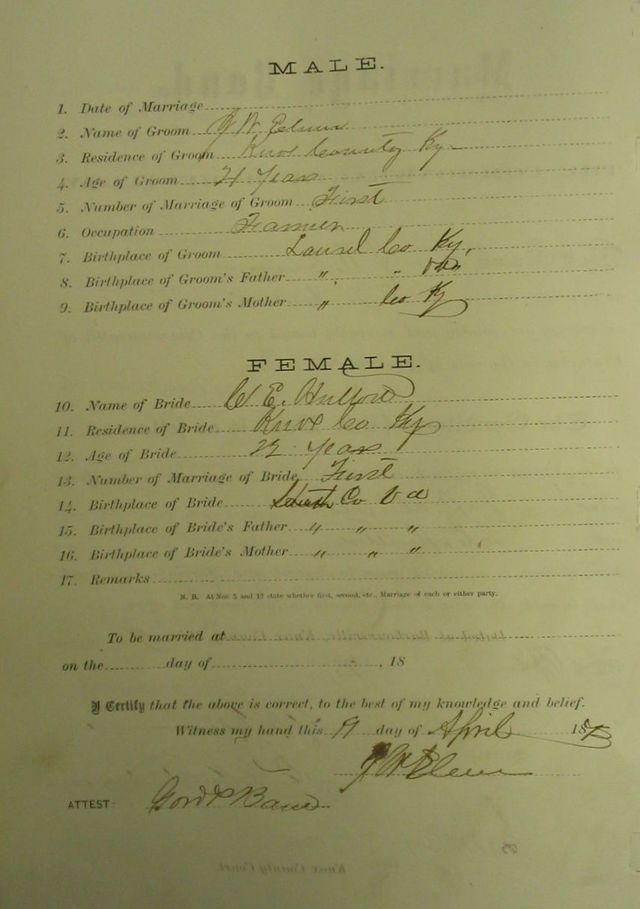 MALE.
1. Date of Marriage
2. Name of Groom J W
3. Residence of Groom Knox County Ky
4. Age of Groom 21 Years
5. Number of Marriage of Groom First
6. Occupation Farmer
7. Birthplace of Groom Laurel Co Ky,
8. Birthplace of Groom's Father " "
9. Birthplace of Groom's Mother " Co Ky
FEMALE.
10. Name of Bride E.
11. Residence of Bride Knox Co Ky
12. Age of Bride Years
13. Number of Marriage of Bride First
14. Birthplace of Bride Co Va
15. Birthplace of Bride's Father " " "
16. Birthplace of Bride's Mother " " "
17. Remarks
N. B. At Nos. 5 and 13 state whether first, second, etc., Marriage of each or either party.
To be married at
on the day of , 18
I Certify that the above is correct, to the best of my knowledge and belief.
Witness my hand this 19 day of April 18
J W
ATTEST: